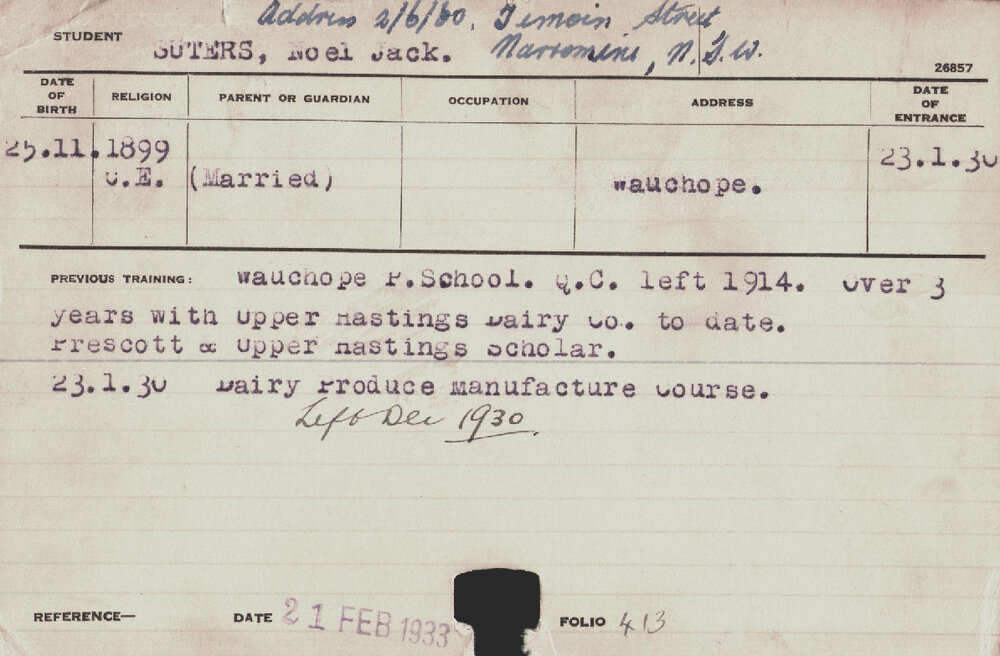 Address 2/6/60, Temoin Street
STUDENT SUTERS, Noel Jack. Narromine, N.S.W.
26857
DATE OF BIRTH RELIGION PARENT OR GUARDIAN OCCUPATION ADDRESS DATE OF ENTRANCE
25.11.1899 23.1.30
C.E. (Married) Wauchope.
PREVIOUS TRAINING: Wauchope P.School. Q.C. left 1914. Over 3
years with Upper Hastings Dairy Co. to date.
Prescott & Upper Hastings Scholar.
23.1.30 Dairy Produce Manufacture Course.
Left Dec 1930.
REFERENCE— DATE 21 FEB 1933 FOLIO 413